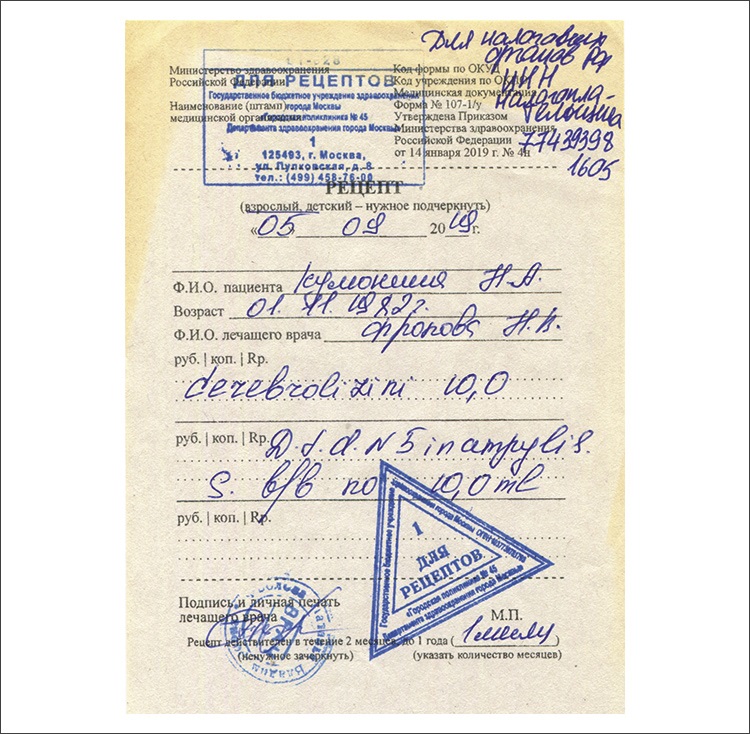 Для налоговых
органов РФ
ИНН
налогопла-
тельщика
77439398
1605
Министерство здравоохранения
Российской Федерации
Наименование (штамп)
медицинской организации
ДЛЯ РЕЦЕПТОВ
Государственное бюджетное учреждение здравоохранения
города Москвы
«Городская поликлиника № 45
Департамента здравоохранения города Москвы»
1
125493, г. Москва,
ул. Пулковская, д. 8
тел.: (499) 458-76-00
Код формы по ОКУД
Код учреждения по ОКПО
Медицинская документация
Форма № 107-1/у
Утверждена Приказом
Министерства здравоохранения
Российской Федерации
от 14 января 2019 г. № 4н
РЕЦЕПТ
(взрослый, детский – нужное подчеркнуть)
«05 09 2019 г.
Ф.И.О. пациента Н.А.
Возраст 01. 11. 1982г.
Ф.И.О. лечащего врача Фролова
руб. | коп. | Rp.
Cerebrolizini 10,0
руб. | коп. | Rp. D.t.d. N 5 in ampylis.
S. в/в по 10,0 ml
руб. | коп. | Rp.
1
ДЛЯ
РЕЦЕПТОВ
Государственное бюджетное учреждение здравоохранения города Москвы
«Городская поликлиника № 45
Департамента здравоохранения города Москвы»
Подпись и личная печать
лечащего врача
М.П.
Рецепт действителен в течение 2 месяцев, до 1 года (1 месяц)
(ненужное зачеркнуть) (указать количество месяцев)